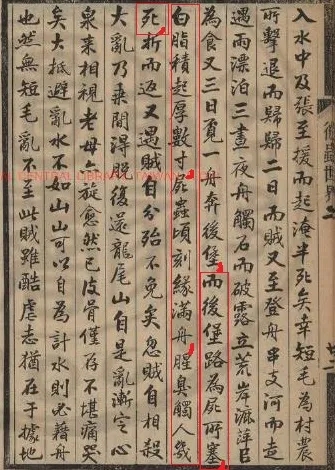 入水中及張至援而起淹半死矣幸短毛為村農
所擊退而歸歸二日而賊又至登舟串支河而走
遇雨漂泊三晝夜舟觸石而破露立荒岸淋萍
為食又三日覓一舟奔後堡而後堡路為屍所塞
白脂積起厚數寸屍蟲頃刻緣滿舟腥臭觸人幾
死折而返又遇賊自分殆不免矣忽賊自相殺
大亂乃乘間得脫復還龍尾山自是亂漸定心
泉來相視老母亦旋愈然已皮骨僅存不堪痛哭
矣大抵避亂水不如山山可以自為計水則必藉舟
也然無短毛亂不至此賊雖酷虐志猶在于據地
CENTRAL LIBRARY TAIWAN